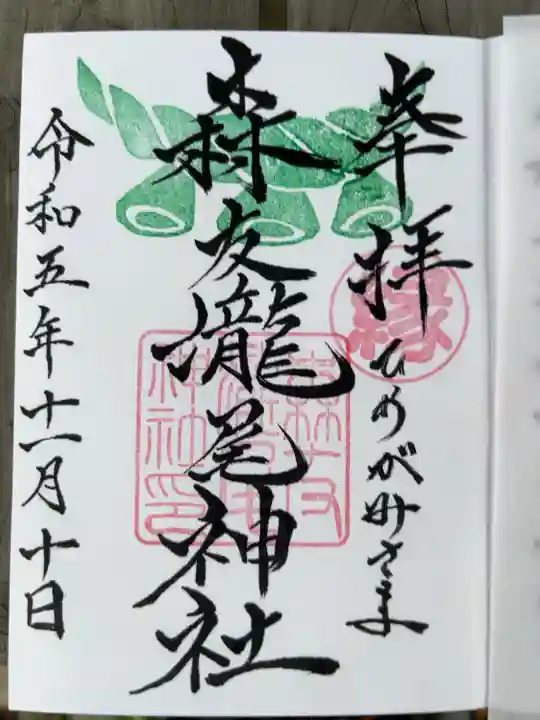 奉拝
縁
ひめがみさま
森友瀧尾神社
森友
瀧尾
神社印
令和五年十一月十日